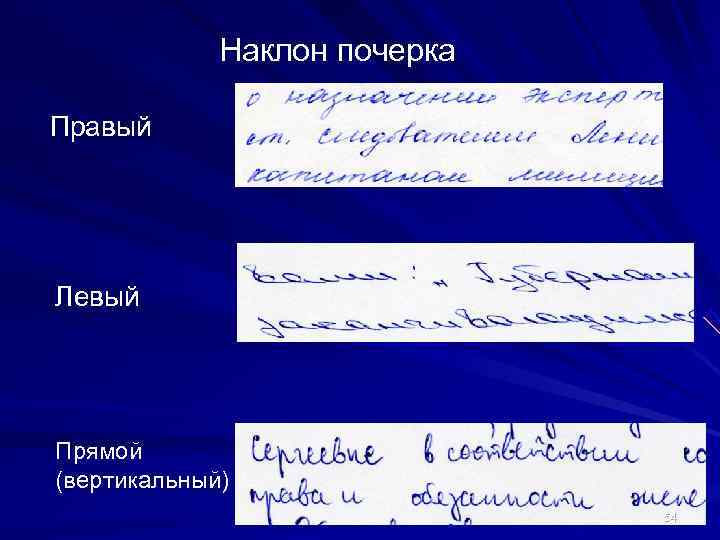 Наклон почерка
Правый
о назначении эксперт
ст. следователем Лени
капитаном милиции
Левый
вали: „Губернат
заканчивающимся
Прямой
(вертикальный)
Сергеевне в соответствии со
права и обязанности экспе
54